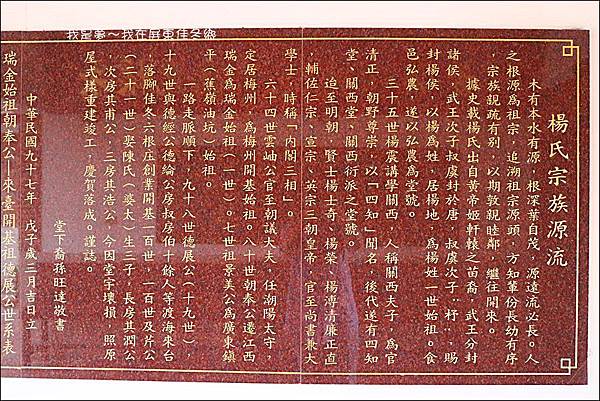 我是夢~我在屏東佳冬鄉
楊氏宗族源流
木有本水有源，根深葉自茂，源遠流必長。人
之根源為祖宗，追溯祖宗源頭，方知輩份長幼有序
，宗族親疏有別，以期敦親睦鄰，繼往開來。
據史載楊氏出自黃帝姬軒轅之苗裔，武王分封
諸侯，武王次子叔虞封於唐，叔虞次子〝杼〞，賜
封楊侯，以楊為姓，居楊地，為楊姓一世始祖。食
邑弘農，遂以弘農為堂號。
三十五世楊震講學關西，人稱關西夫子，為官
清正，朝野尊崇，以「四知」聞名，後代遂有四知
堂、關西堂、關西衍派之堂號。
迨至明朝，賢士楊士奇、楊榮、楊溥清廉正直
，輔佐仁宗、宣宗、英宗三朝皇帝，官至尚書兼大
學士，時稱「內閣三相」。
六十四世雲岫公官至朝議大夫，任潮陽太守，
定居梅州，為梅州開基始祖。八十世朝奉公遷江西
瑞金為瑞金始祖（一世）。七世祖景美公為廣東鎮
平（蕉嶺油坑）始祖。
一路走脈順下，九十八世德展公（十九世），
十九世與德經公德綸公房叔房伯十餘人等渡海來台
落腳佳冬六根庄創業開基一百世，一百世及芹公
（二十一世）娶陳氏（婆太）生三子，長房其潤公
，次房其甫公，三房其浩公，今因堂宇壞損，照原
屋式樣重建竣工，慶賀落成。謹誌。
堂下裔孫旺達敬書
中華民國九十七年 戊子歲二月吉日立
瑞金始祖朝奉公—來臺開基祖德展公世系表